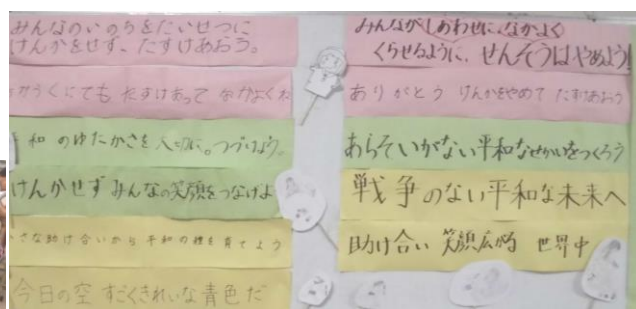 みんなのいのちをたいせつに
けんかをせず、たすけあおう。
にても たすけあって なかよく
和 のゆたかさを 大切に。つづけよう。
けんかせず みんなの笑顔をつなげよ
さな助け合いから 平和の種を育てよう
今日の空 すごくきれいな青色だ
みんながしあわせに、なかよく
くらせるように、せんそうはやめよう!
ありがとう けんかをやめて たすけあおう
あらそいがない平和なせかいをつくろう
戦争のない平和な未来へ
助け合い 笑顔広める 世界中